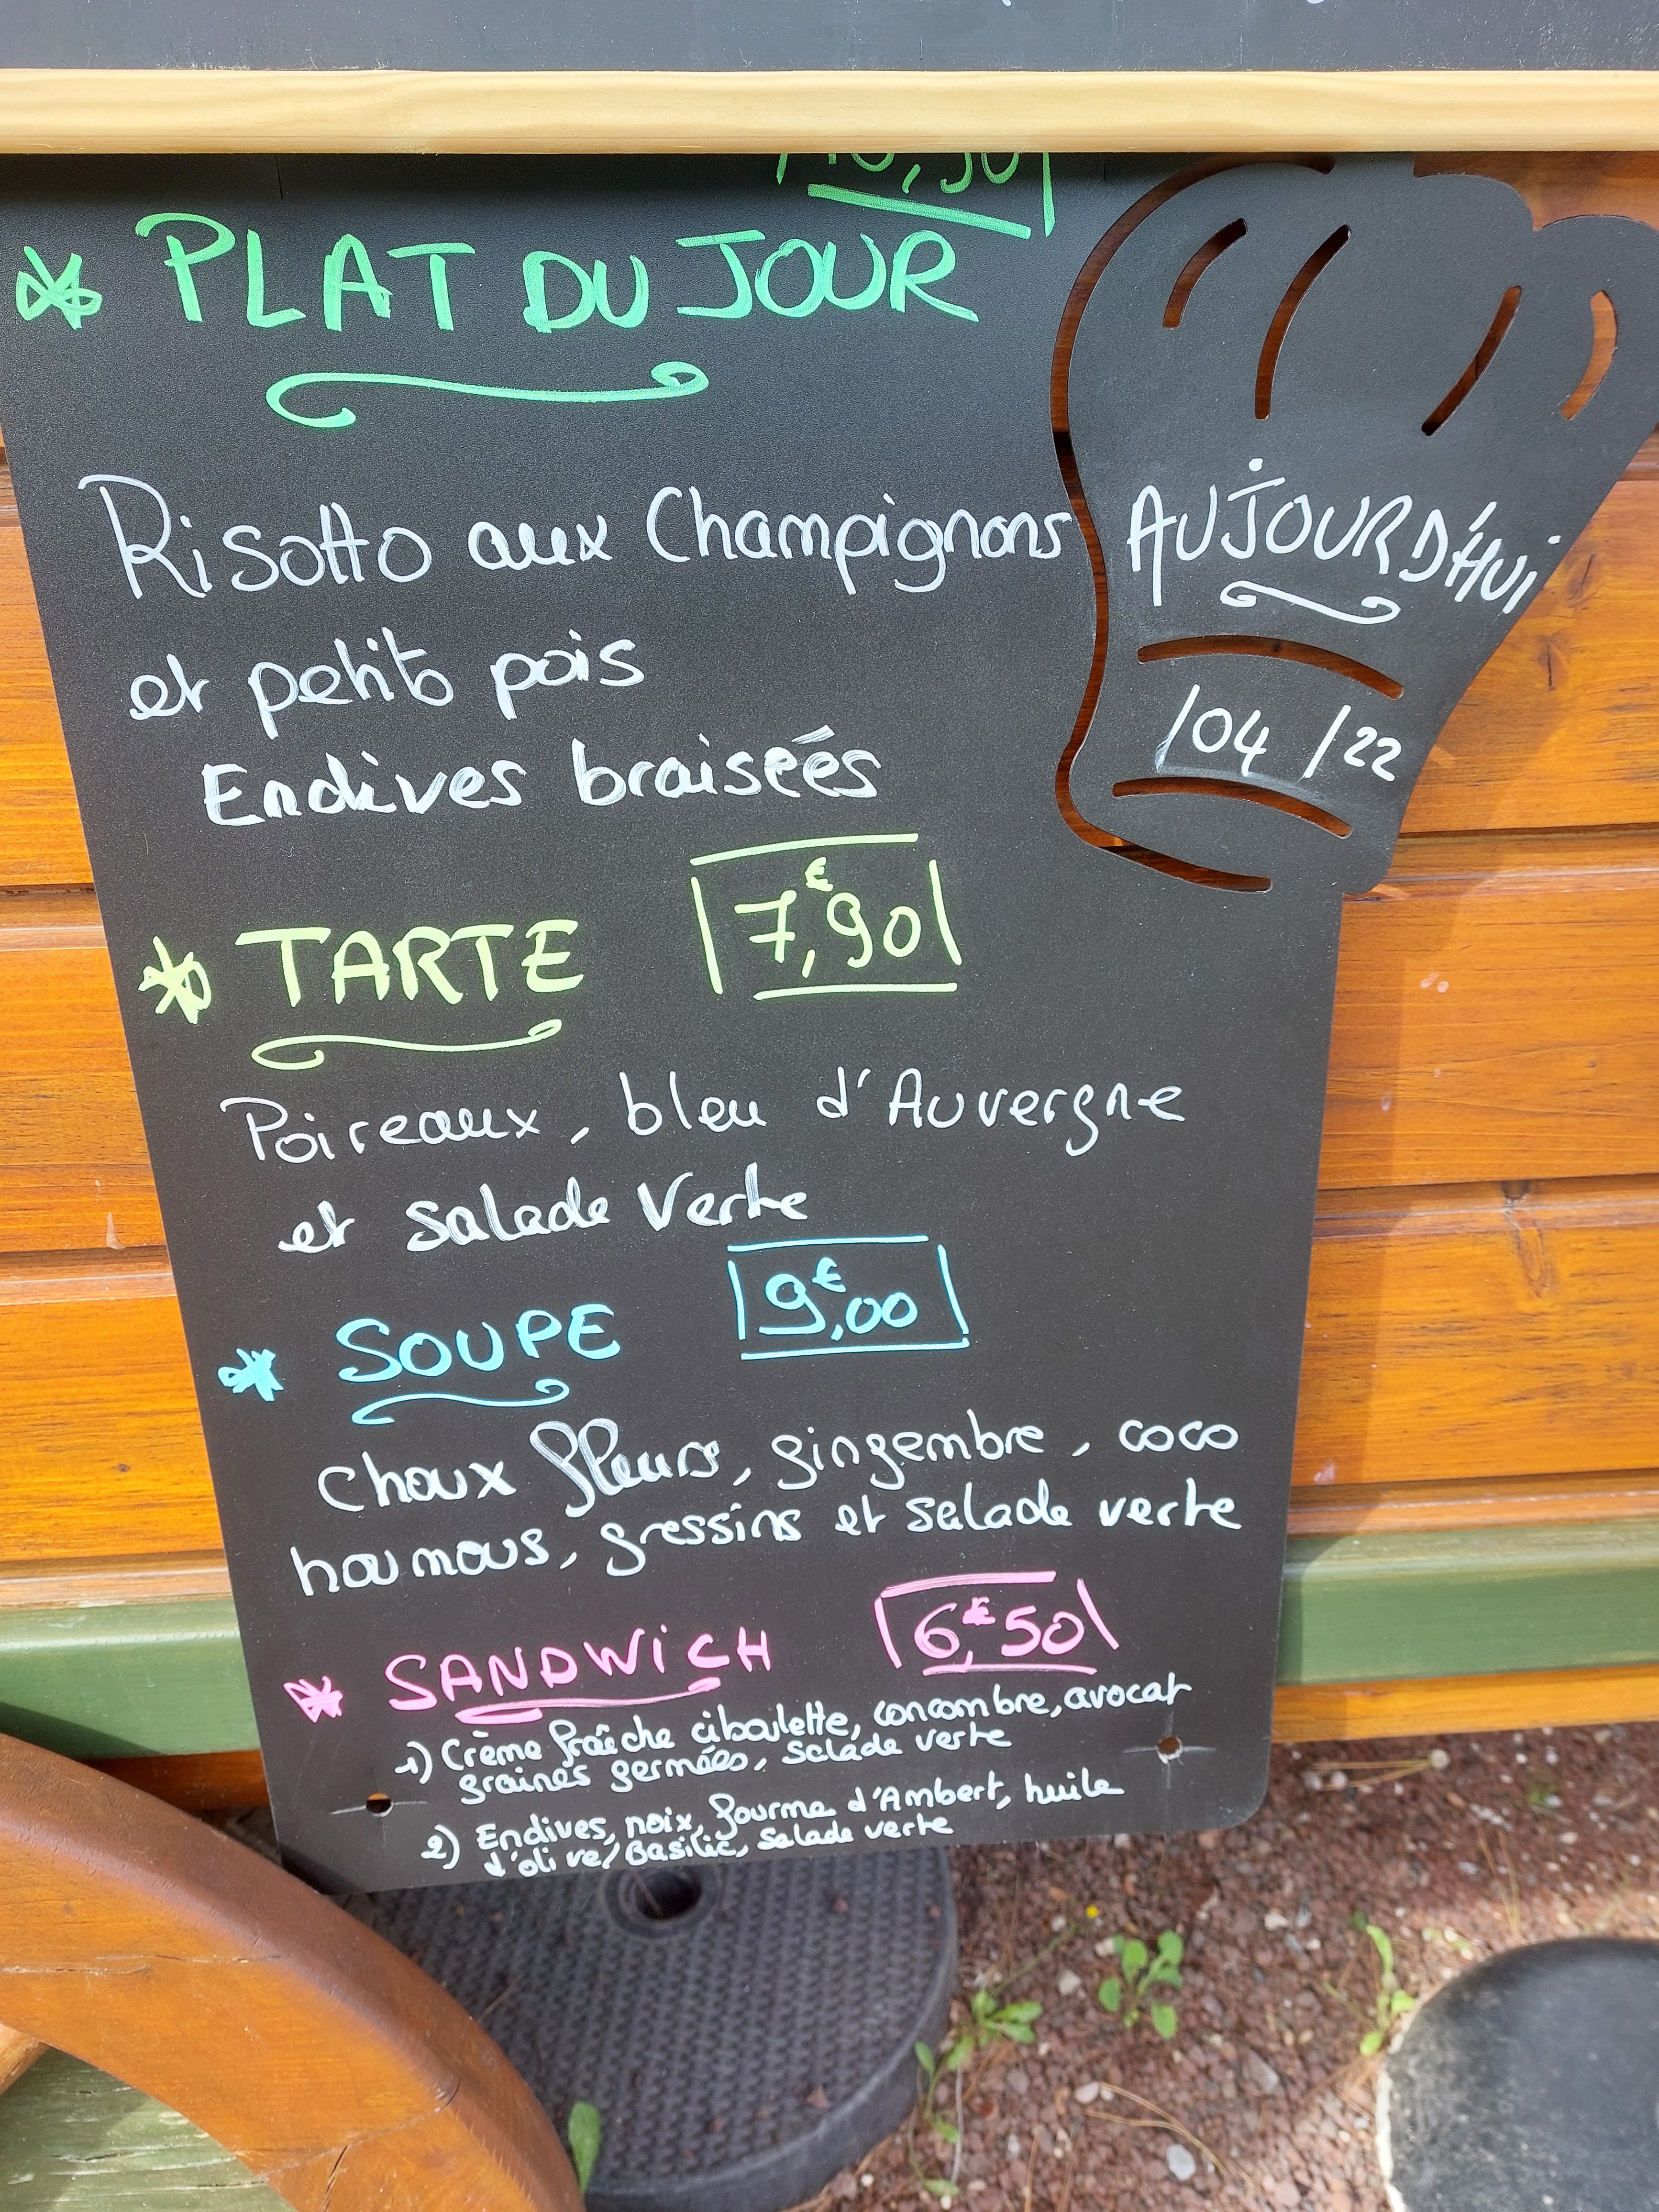 * PLAT DU JOUR
Risotto aux Champignons
et petits pois
Endives braiseés
AUJOURD'HUI
/04 /22
* TARTE 7,€90
Poireaux, bleu d'Auvergne
et salade verte
* SOUPE 9,€00
choux fleurs, gingembre, coco
houmous, gressins et salade verte
* SANDWICH 6,€50
1) Crème fraîche ciboulette, concombre, avocat
graines germées, salade verte
2) Endives, noix, fourme d'Ambert, huile
d'olive, Basilic, salade verte